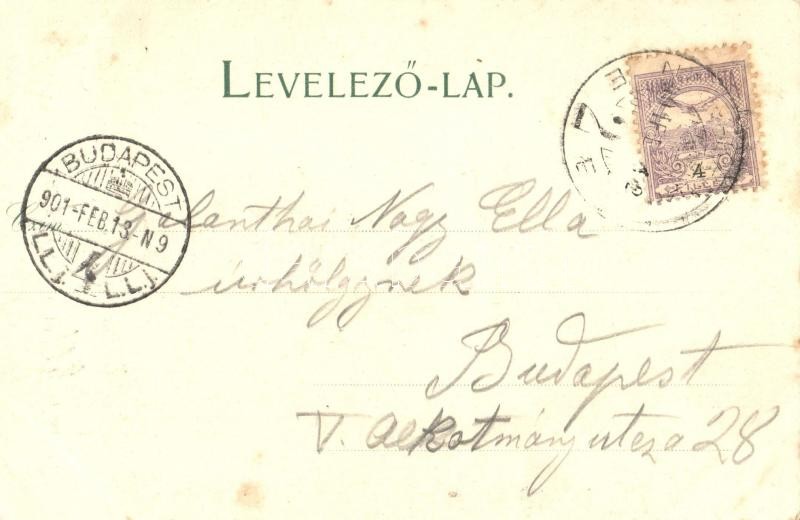 LEVELEZŐ-LAP.
BUDAPEST
901-FEB.13.-N9
I.L.j. I.L.j.
4
Galanthai Nagy Ella
úrhölgynek
Budapest
V. Alkotmány utcza 28